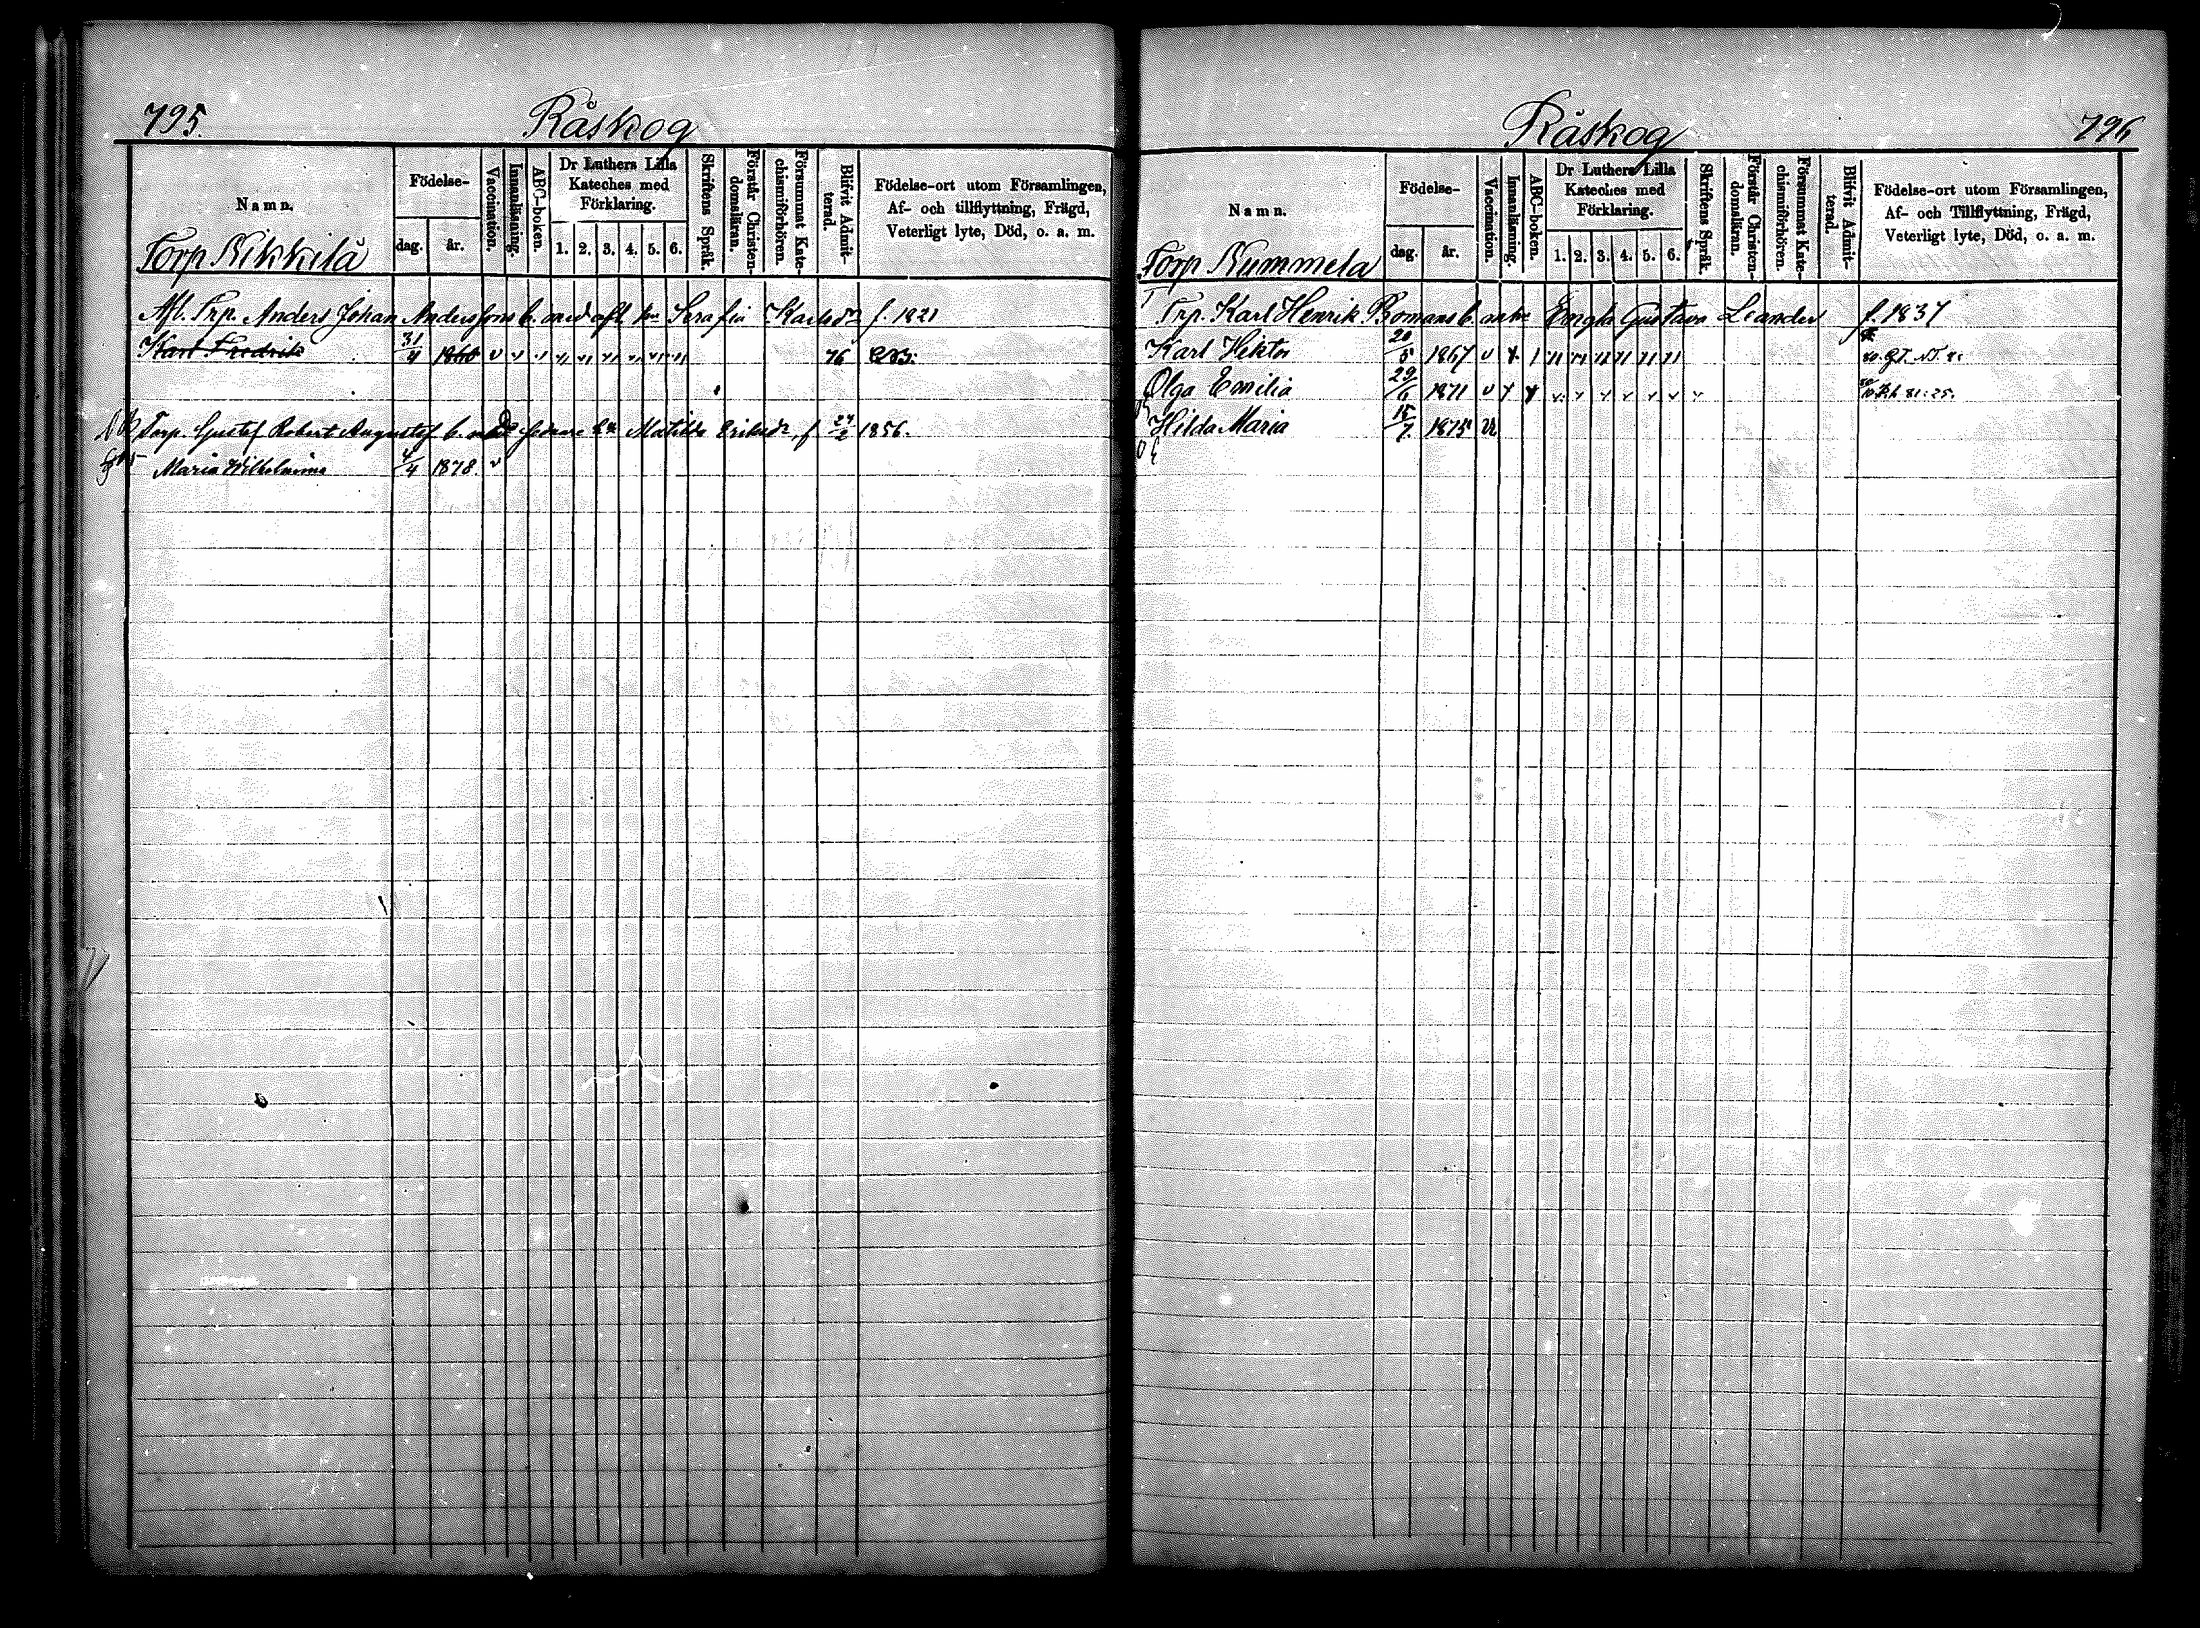 795.
Råskog
Namn.
Födelse-
dag. år.
Vaccination.
Innanläsning.
ABC-boken.
Dr Luthers Lilla
Kateches med
Förklaring.
1. 2. 3. 4. 5. 6.
Skriftens Språk.
Förstår Christen-
domsläran.
Försummat Kate-
chismiförhören.
Blifvit Admit-
terad.
Födelse-ort utom Församlingen,
Af- och tillflyttning, Frägd,
Veterligt lyte, Död, o. a. m.
Torp Nikkilä
Afl. Trp. Anders Johan Anderssons b. med afl. hu Serafia Karlsdr f. 1821
Karl Fredrik 31/4 1860 76
Torp. Gustaf Robert Augustsf b. Matilda Eriksdr, f 1856.
Maria Wilhelmina 4/4 1878
Råskog
796
Namn.
Födelse-
dag. år.
Vaccination.
Innanläsning.
ABC-boken.
Dr Luthers Lilla
Kateches med
Förklaring.
1. 2. 3. 4. 5. 6.
Skriftens Språk.
Förstår Christen-
domsläran.
Försummat Kate-
chismiförhören.
Blifvit Admit-
terad.
Födelse-ort utom Församlingen,
Af- och Tillflyttning, Frägd,
Veterligt lyte, Död, o. a. m.
Torp Nummela
Trp. Karl Henrik Bomans b. m hu Engla Gustava Leander f. 1837
Karl Hektor 20/5 1867
Olga Emilia 29/6 1871
Hilda Maria 15/7. 1875